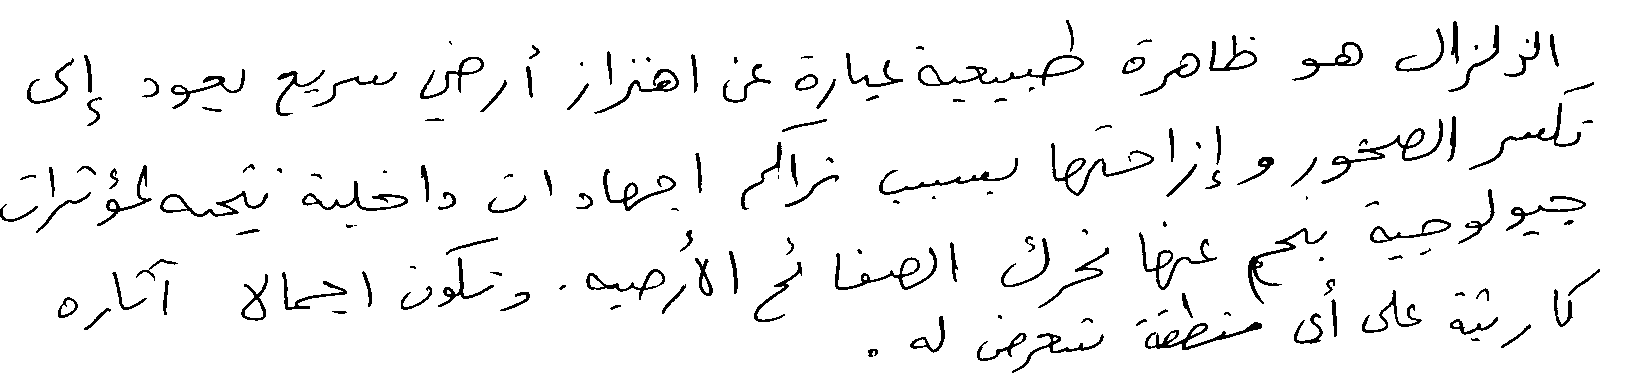 الزلزال هو ظاهرة طبيعية عبارة عن اهتزاز أرضي سريع يعود إلى
تكسر الصخور وإزاحتها بسبب تراكم اجهادات داخلية نتيجه لمؤثرات
جيولوجية ينجم عنها تحرك الصفائح الأرضيه. وتكون اجمالا آثاره
كارثية على أي منطقة تتعرض له.